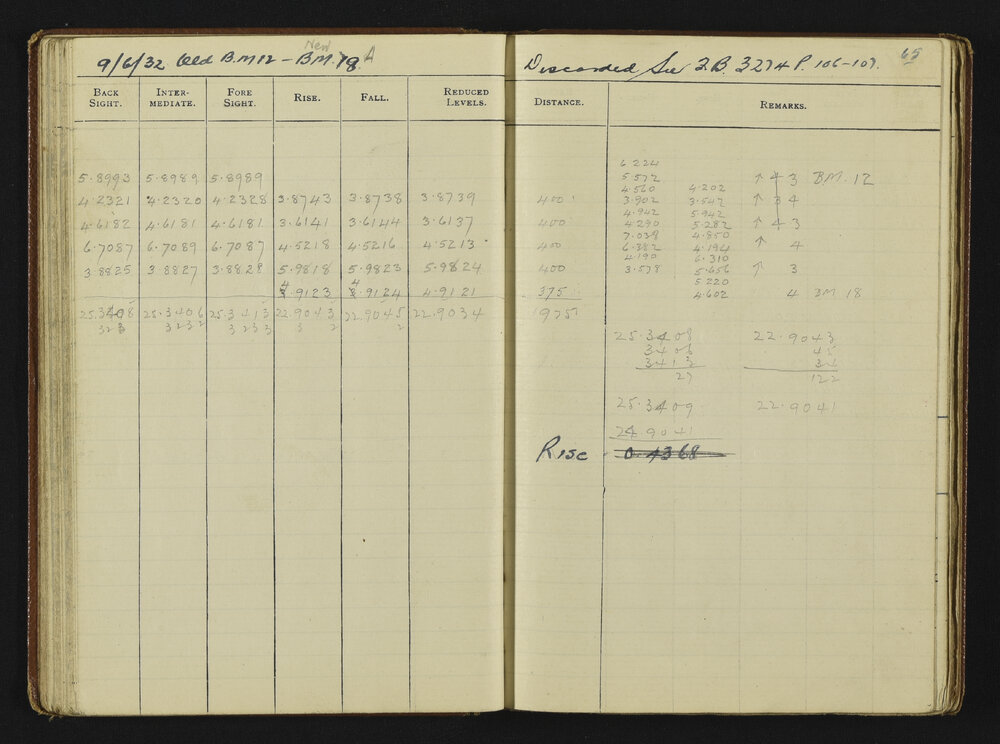 New
9/6/32 Old B.M 12 - B.M. 18 A
BACK SIGHT. INTER-MEDIATE. FORE SIGHT. RISE. FALL. REDUCED LEVELS.
5.8993 5.8989 5.8989
4.2321 4.2320 4.2328 3.8743 3.8738 3.8739
4.6182 4.6181 4.6181 3.6141 3.6144 3.6137
6.7087 6.7089 6.7087 4.5218 4.5216 4.5213
3.8825 3.8827 3.8828 5.9818 5.9823 5.9824
4.9123 4.9124 4.9121
25.3408 25.3406 25.3413 22.9043 22.9045 22.9034
323 3232 3233 3 2 2
65
Discarded See F.B. 3274 P. 106-107.
DISTANCE. REMARKS.
6.224
5.572 ↑ 4 3 BM. 12
4.560 4.202
400 3.902 3.542 ↑ 3 4
4.942 5.942
400 4.290 5.282 ↑ 4 3
7.039 4.850
400 6.382 4.194 ↑ 4
4.190 6.310
400 3.538 5.656 ↑ 3
5.220
375 4.602 4 BM 18
1975
25.3408 22.9043
3406 45
3413 34
27 122
25.3409 22.9041
9041
Rise 0.4368